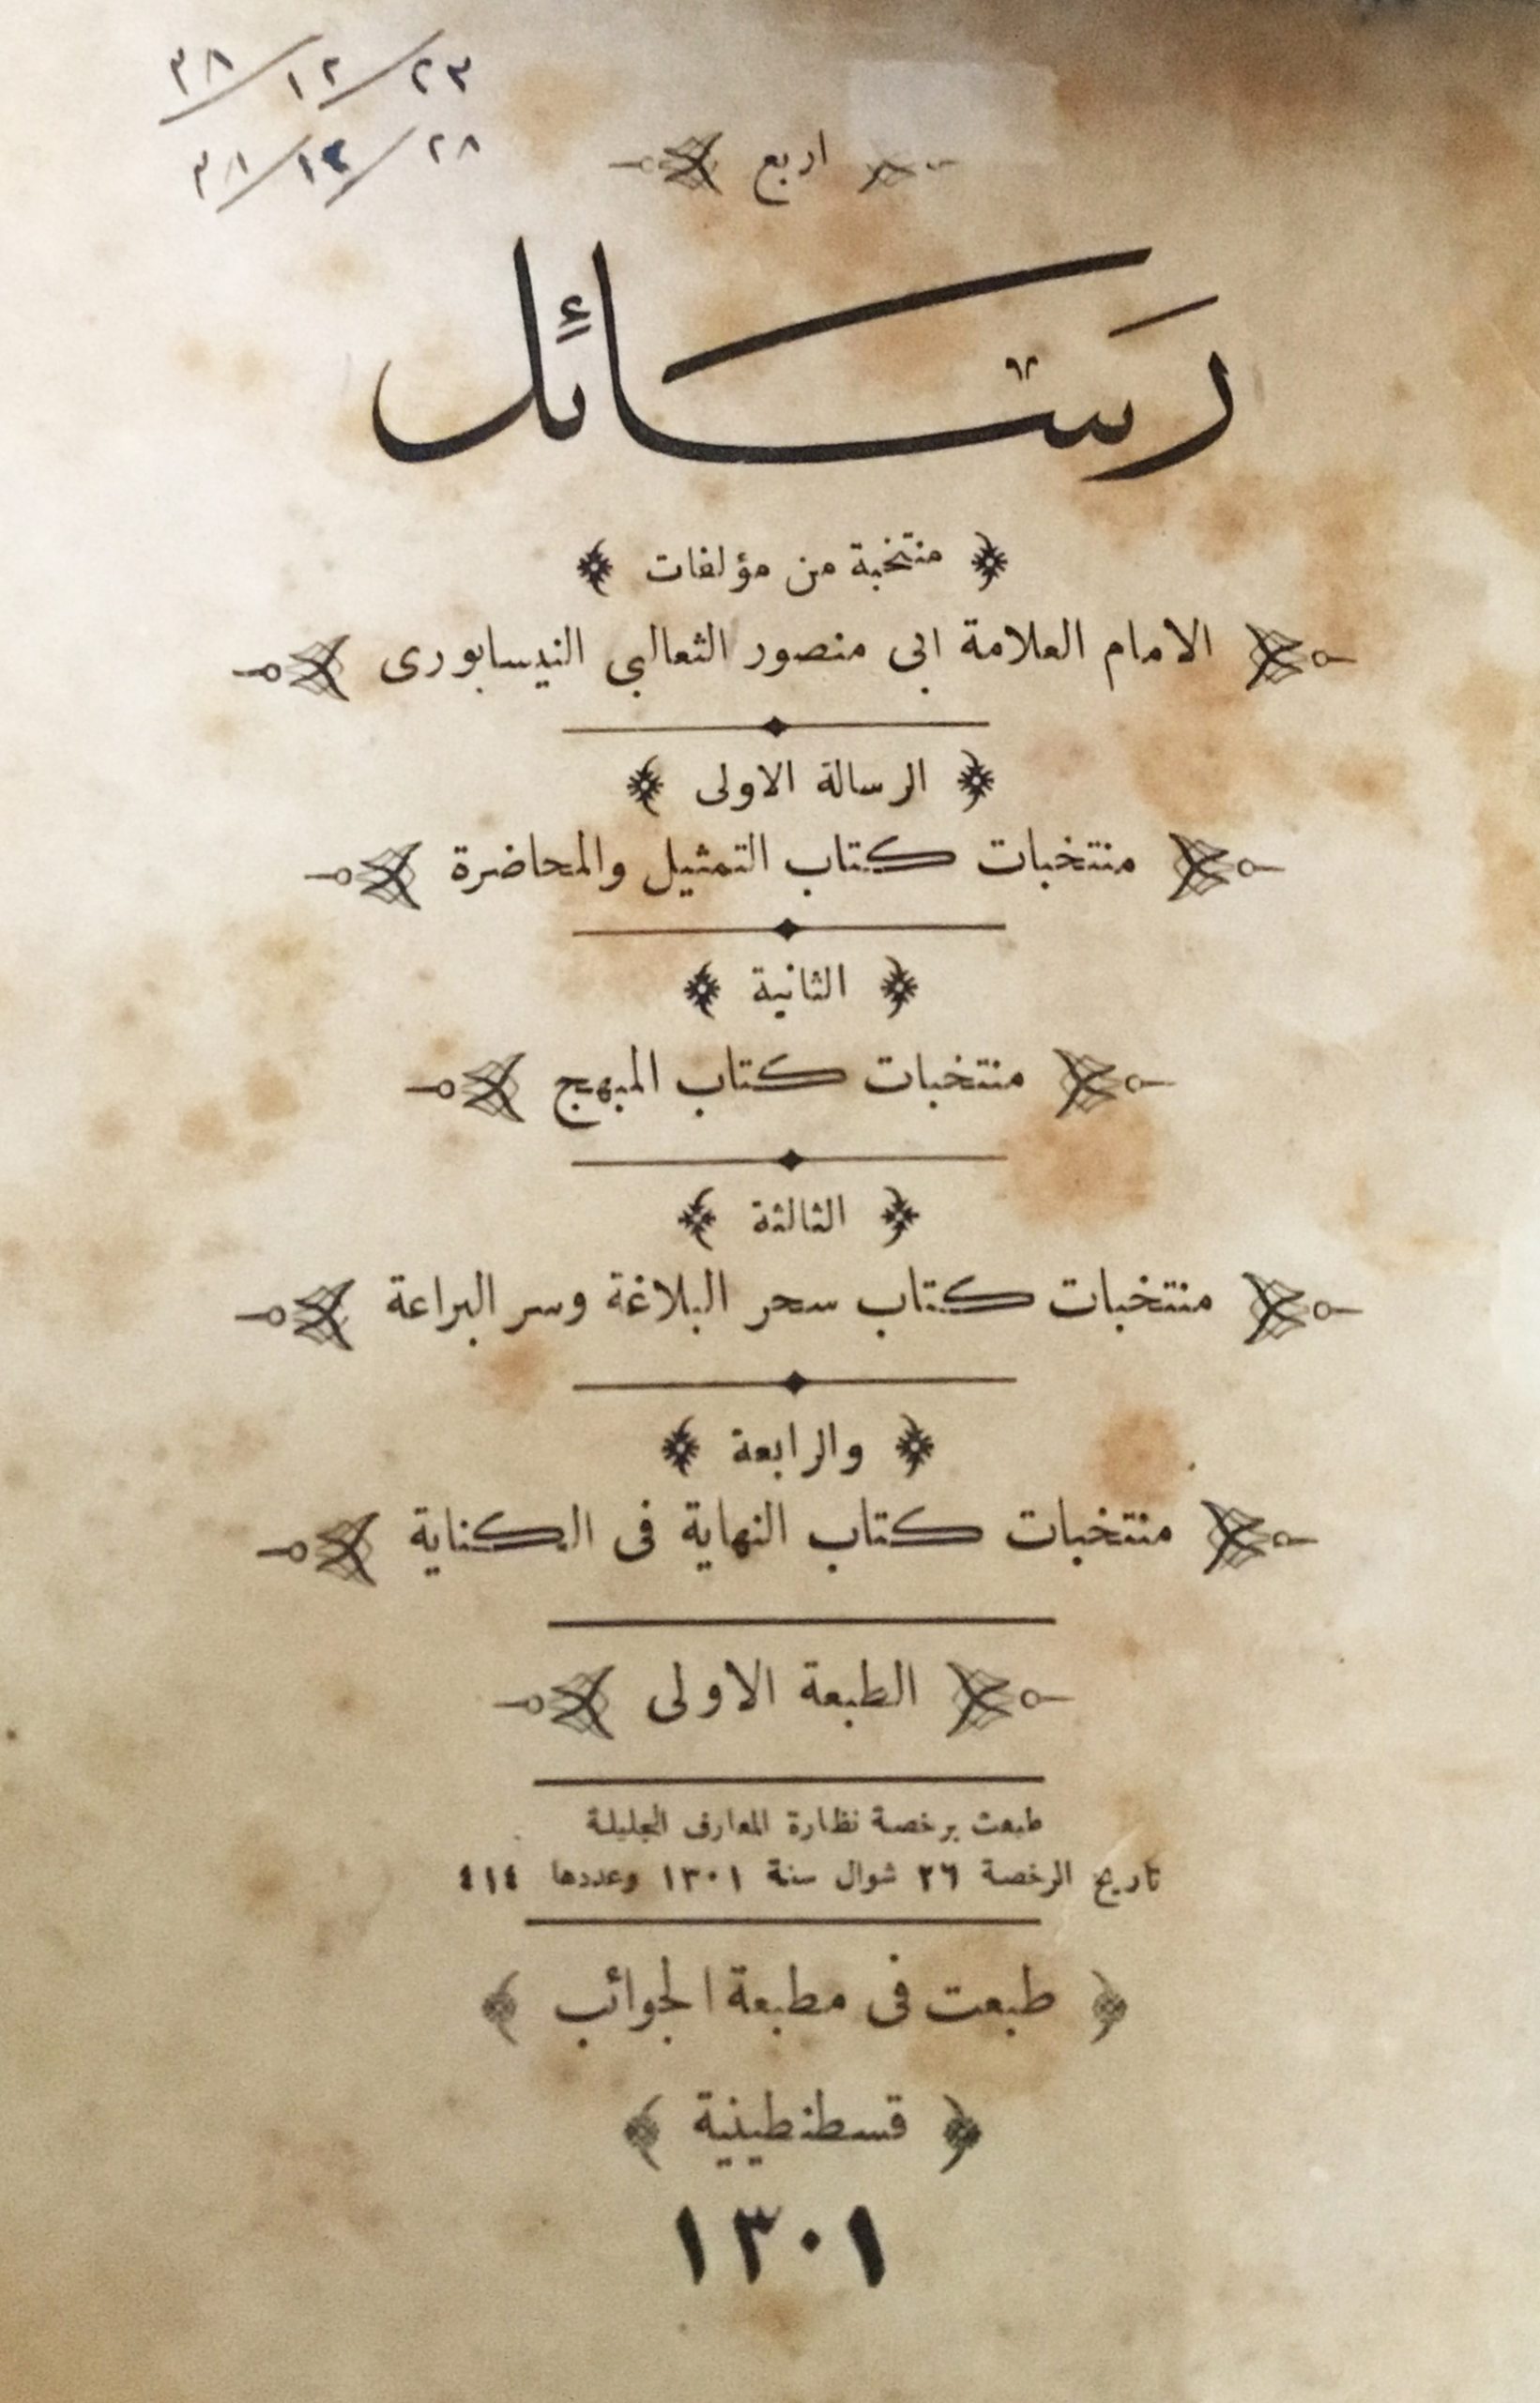 ٢٣/١٢/٣٨
٢٨/١٢/٣٨
اربع
رَسَائِل
منتخبة من مؤلفات
الامام العلامة ابى منصور الثعالبي النيسابورى
الرسالة الاولى
منتخبات كتاب التمثيل والمحاضرة
الثانية
منتخبات كتاب المبهج
الثالثة
منتخبات كتاب سحر البلاغة وسر البراعة
والرابعة
منتخبات كتاب النهاية فى الكناية
الطبعة الاولى
طبعت برخصة نظارة المعارف الجليلة
تاريخ الرخصة ٢٦ شوال سنة ١٣٠١ وعددها ٤١٤
طبعت فى مطبعة الجوائب
قسطنطينية
١٣٠١